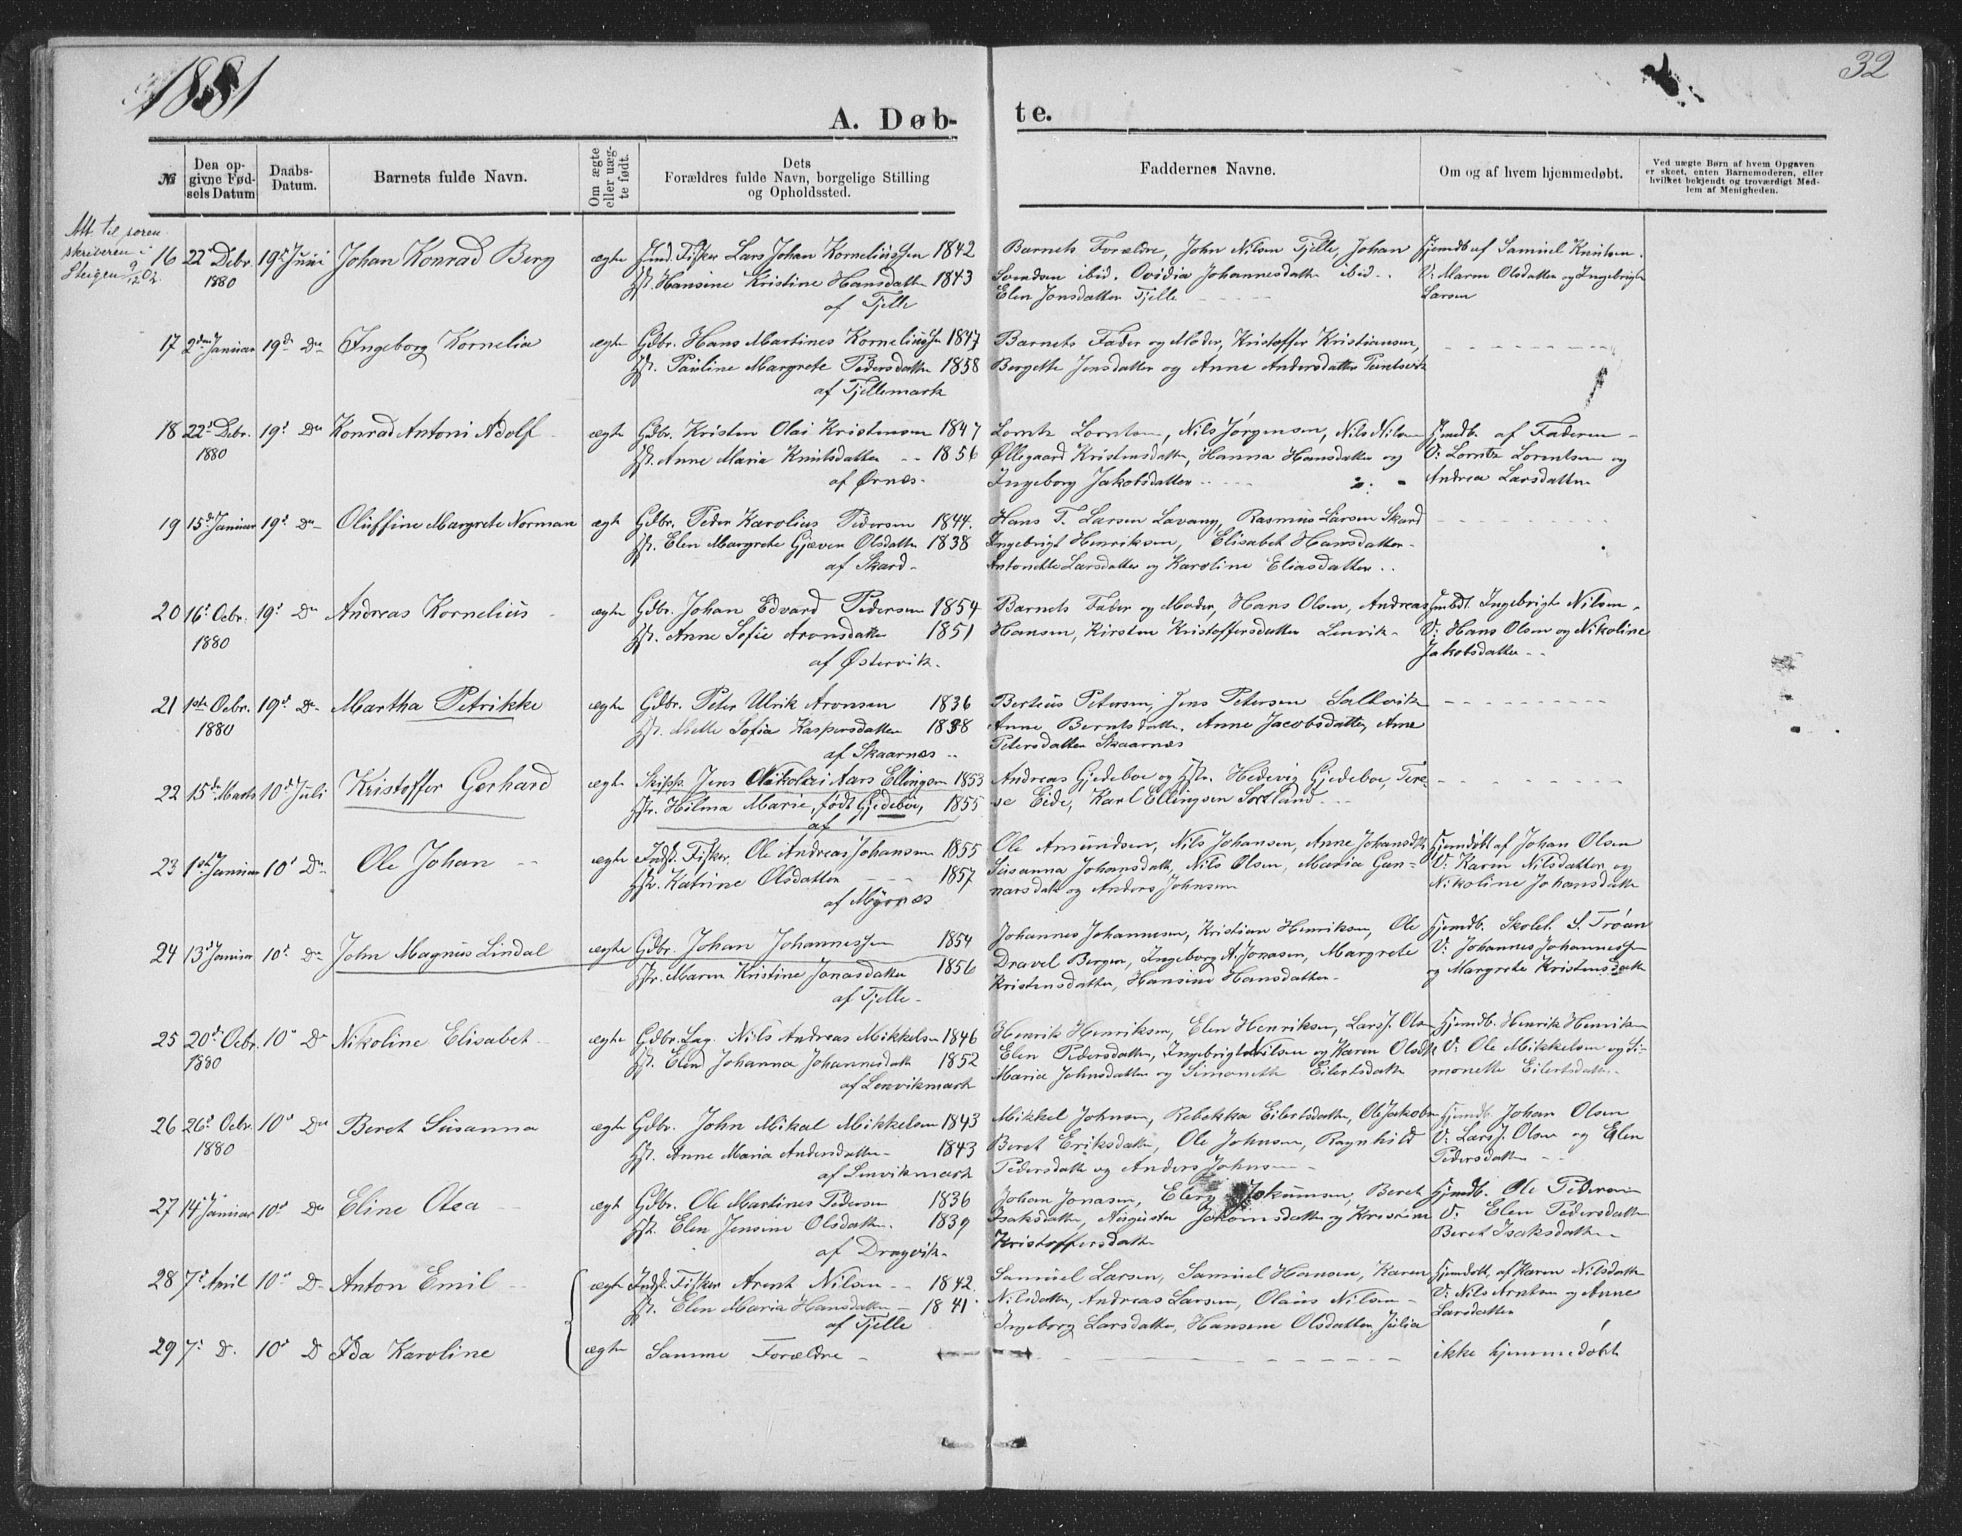 1881
32
A. Døb-
te.
№
Den op-
givne Fød-
sels Datum
Daabs-
Datum.
Barnets fulde Navn.
Om ægte
eller uæg-
te født.
Dets
Forældres fulde Navn, borgelige Stilling
og Opholdssted.
Faddernes Navne.
Om og af hvem hjemmedøbt.
Ved uægte Børn af hvem Opgaven
er skeet, enten Barnemoderen, eller
hvilket bekjendt og troværdigt Med-
lem af Menigheden.
Att. til soren
skriveren i
Steigen
16 22 Debr. 19 Juni Johan Konrad Berg ægte Ind. Fisker Lars Johan Korneliussen 1842 Barnets Forældre, John Nilsen Tjelle, Johan Hjemdb. af Samuel Knutsen.
1880 Hansine Kristine Hansdatter 1843 Svendsen ibid. Ovidia Johannesdatter ibid. V: Maren Olsdatter og Ingebrigt
af Tjelle Elen Jonsdatter Tjelle Larsen
17 2den Januar 19 Do Ingeborg Kornelia ægte Gdbr. Hans Martines Korneliussen 1847 Barnets Fader og Moder, Kristoffer Kristiansen,
Pauline Margrete Pedersdatter 1858 Bergette Jensdatter og Anne Andersdatter
af Tjellemark
18 22 Debr. 19 Do Konrad Antoni Adolf ægte Gdbr. Kristen Olai Kristensen 1847 Lornts Lorntsen, Nils Jørgensen, Nils Nilsen Hjemdb. af Faderen
1880 Anne Maria Knutsdatter 1856 Øllegaard Kristensdatter, Hanna Hansdatter og V: Lornts Lorentsen og
af Ørnes Ingeborg Jakobsdatter Andrea Larsdatter
19 15 Januar 19 Do Oluffine Margrete Norman ægte Gdbr. Peder Karolius Pedersen 1844. Hans T. Larsen Lavang, Rasmus Larsen Skard
Elen Margrete Gjæver Olsdatter 1838 Ingebrigt Henriksen, Elisabet Hansdatter
af Skard Antonette Larsdatter og Karoline Eliasdatter
20 16 Octbr. 19 Do Andreas Kornelius ægte Gdbr. Johan Edvard Pedersen 1854 Barnets Fader og Moder, Hans Olsen, Andreas Hjembdt. Ingebrigt Nilsen
1880 Anne Sofie Aronsdatter 1851 Hansen, Kirsten Kristoffersdatter Lenvik V: Hans Olsen og Nikoline
af Østervik Jakobsdatter
21 1ste Octbr. 19 Do Martha Petrikke ægte Gdbr. Peter Ulrik Aronsen 1836 Bertius Petersen, Jens Petersen
1880 Mette Sofia Kaspersdatter 1838 Anne Berntsdatter, Anne Jacobsdatter, Anne
af Skaarnæs Petersdatter Skaarnæs
22 15 Marts 10 Juli Kristoffer Gerhard ægte Skipp. Jens Nikolai Aars Ellingsen 1853 Andreas Gjedeboe og Hedevig Gjedeboe, There-
Hilma Marie, født Gjedeboe, 1855 se Eide, Karl Ellingsen Sortland
af
23 1ste Januar 10 Do Ole Johan ægte Indst. Fisker. Ole Andreas Johansen 1855 Ole Amundsen, Nils Johansen, Anne Johansdtr. Hjemdøbt af Johan Olsen
Katrine Olsdatter 1857 Susanna Johansdatter, Nils Olsen, Maria Gun- V: Karen Nilsdatter og
af Myrnes narsdatter og Anders Johnsen Nikoline Johansdatter
24 13 Januar 10 Do John Magnus Lindal ægte Gdbr. Johan Johannessen 1854 Johannes Johannesen, Kristian Henriksen, Ole Hjemdb. Skolel. S. Trøan
Maren Kristine Jonasdatter 1856 Dravel Bergen, Ingeborg A. Jonasen, Margrete V: Johannes Johannessen
af Tjelle Kristensdatter, Hansine Hansdatter og Margrete Kristensdatter
25 20 Octbr. 10 Do Nikoline Elisabet ægte Gdbr. Lag. Nils Andreas Mikkelsen 1846 Henrik Henriksen, Elen Henriksen, Lars J. Olsen Hjemdb. Henrik Henriksen
1880 Elen Johanna Johannesdatter 1852 Elen Pedersdatter, Ingebrigt Nilsen og Karen Olsdtr V: Ole Mikkelsen og Si-
af Lenvikmark Maria Johnsdatter og Simonette Eilertsdatter monette Eilertsdatter
26 26 Octbr. 10 Do Beret Susanna ægte Gdbr. John Mikal Mikkelsen 1843 Mikkel Johnsen, Rebekka Eilertsdatter, Ole Jakobsen Hjemdb. Johan Olsen
1880 Anne Maria Andersdatter 1843 Beret Eriksdatter, Ole Johnsen, Ragnhild V: Lars J. Olsen og Elen
af Lenvikmark Pedersdatter og Anders Johnsen Pedersdatter
27 14 Januar 10 Do Eline Olea ægte Gdbr. Ole Martines Pedersen 1836 Johan Jonasen, Jokumsen, Beret Hjemdb. Ole Pedersen
Elen Jensine Olsdatter 1839 Isaksdatter, Augusta Jokumsdatter og Kristine V: Elen Pedersdatter
af Dragvik Kristoffersdatter Beret Isaksdatter
28 7 April 10 Do Anton Emil ægte Indst. Fisker Arent Nilsen 1842. Samuel Larsen, Samuel Hansen, Karen Hjemdøbt af Karen Nilsdatter
Elen Maria Hansdatter 1841 Nilsdatter, Andreas Larsen, Olaus Nilsen V: Nils Arntsen og Anne
af Tjelle Ingeborg Larsdatter, Hansine Olsdatter, Julia Larsdatter
29 7 D. 10 D Ida Karoline ægte Samme Forældre ikke hjemmedøbt